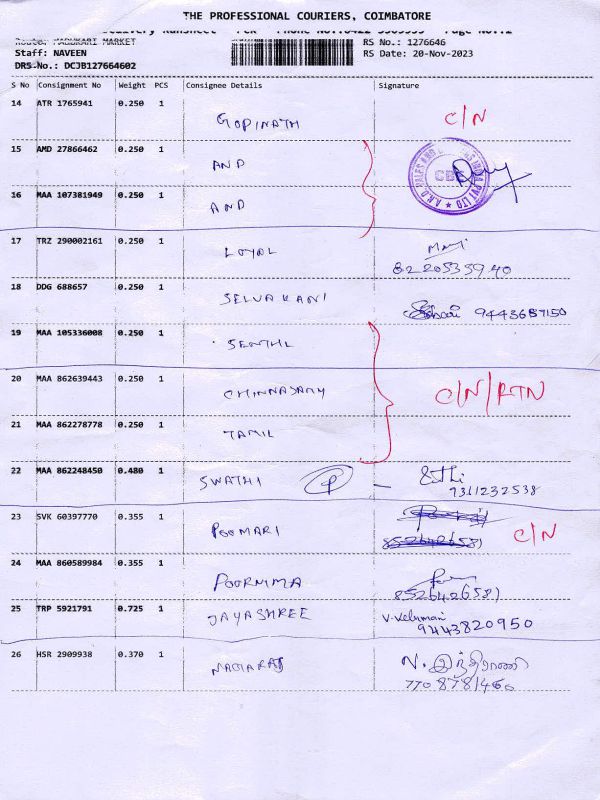 THE PROFESSIONAL COURIERS, COIMBATORE
Delivery Runsheet
Route: MADUKARI MARKET
RS No.: 1276646
Staff: NAVEEN
RS Date: 20-Nov-2023
DRS-No.: DCJB127664602
S No Consignment No Weight PCS Consignee Details Signature
14 ATR 1765941 0.250 1 GOPINATH C/N
15 AMD 27866462 0.250 1 AND
16 MAA 107381949 0.250 1 AND
17 TRZ 290002161 0.250 1 LOYAL
8220535940
18 DDG 688657 0.250 1 SELVAKANI 9443687150
19 MAA 105336008 0.250 1 SENTHIL
20 MAA 862639443 0.250 1 CHINNASAMY C/N/RTN
21 MAA 862278778 0.250 1 TAMIL
22 MAA 862248450 0.480 1 SWATHI P
9311232538
23 SVK 60397770 0.355 1 POOMARI C/N
8526426581
24 MAA 860589984 0.355 1 POORNIMA
8526426581
25 TRP 5921791 0.725 1 JAYASHREE
9443820950
26 HSR 2909938 0.370 1 NAGARAJ N. இந்திராணி
7708781460